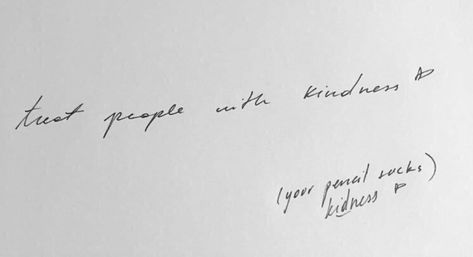 treat people with kindness
(your pencil sucks)
kidness